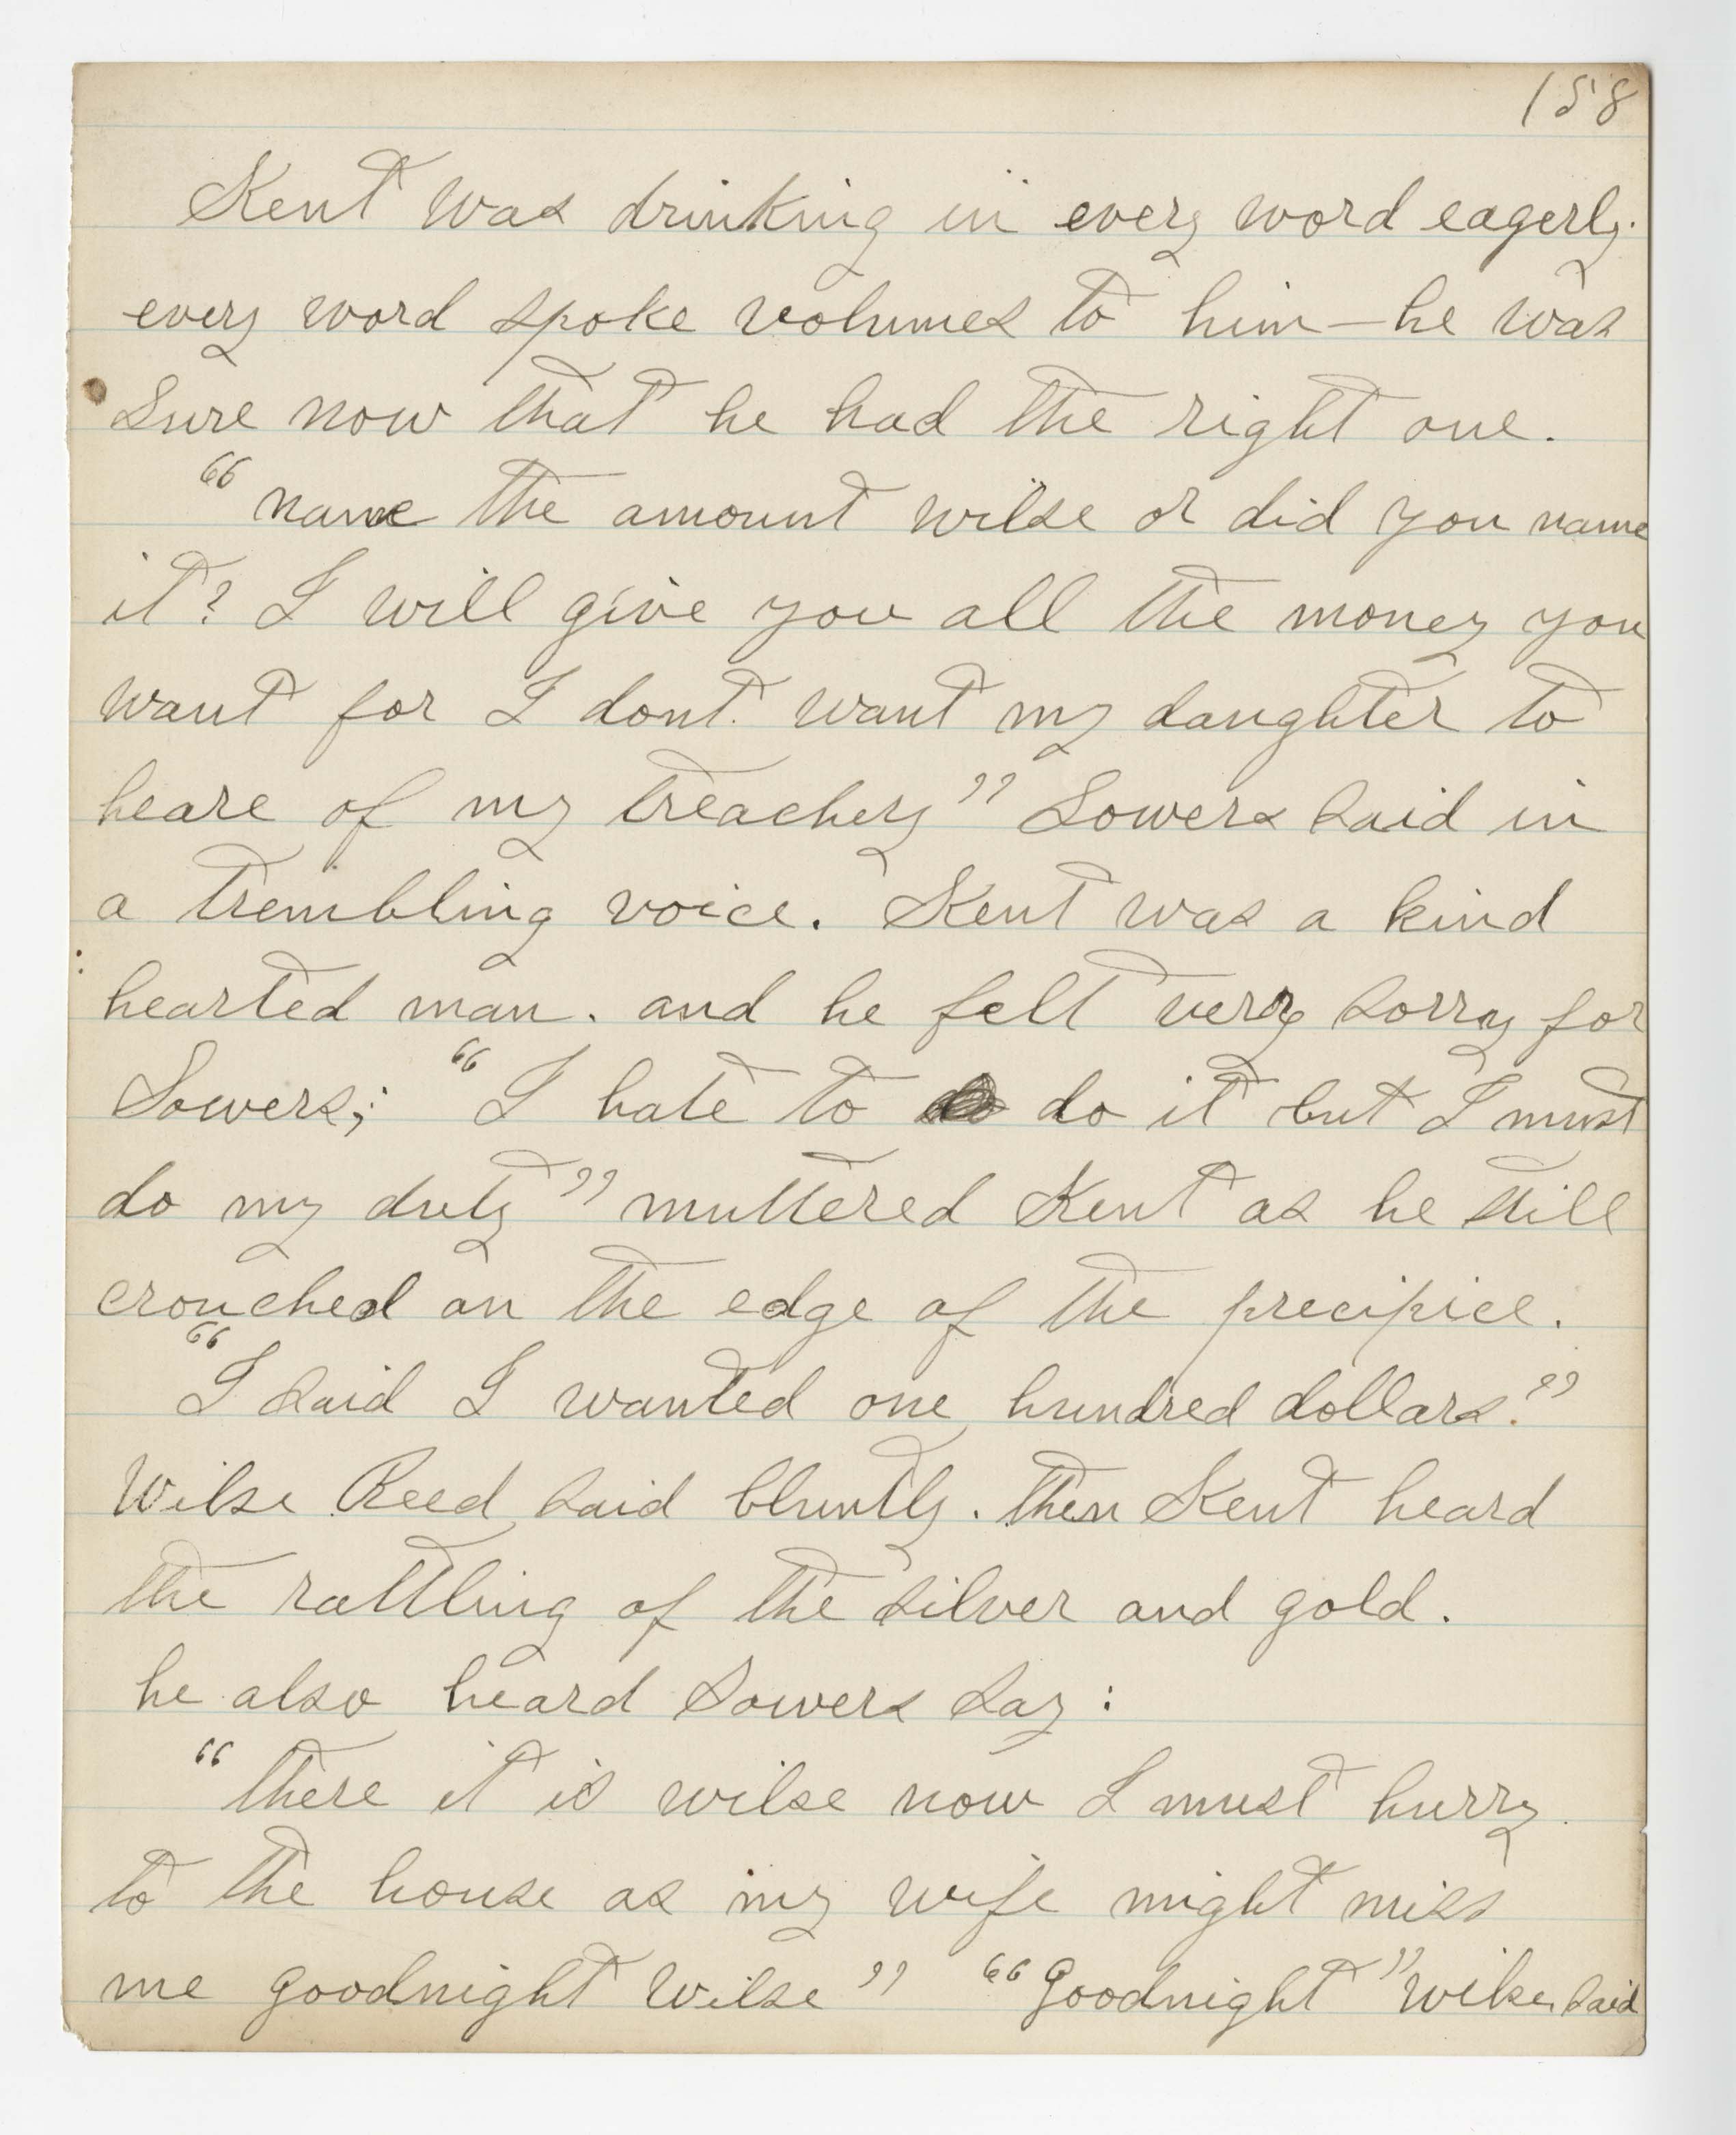 158
Kent was drinking in every word eagerly.
every word spoke volumes to him—he was
sure now that he had the right one.
"name the amount wilse or did you name
it? I will give you all the money you
want for I dont want my daughter to
heare of my treachery" Sowers said in
a trembling voice. Kent was a kind
hearted man. and he felt very sorry for
Sowers; "I hate to do it but I must
do my duty" muttered Kent as he still
crouched on the edge of the precipice.
"I said I wanted one hundred dollars."
Wilse Reed said bluntly. then Kent heard
the rattling of the silver and gold.
he also heard Sowers say:
"there it is wilse now I must hurry
to the house as my wife might miss
me goodnight Wilse" "Goodnight" wilse said